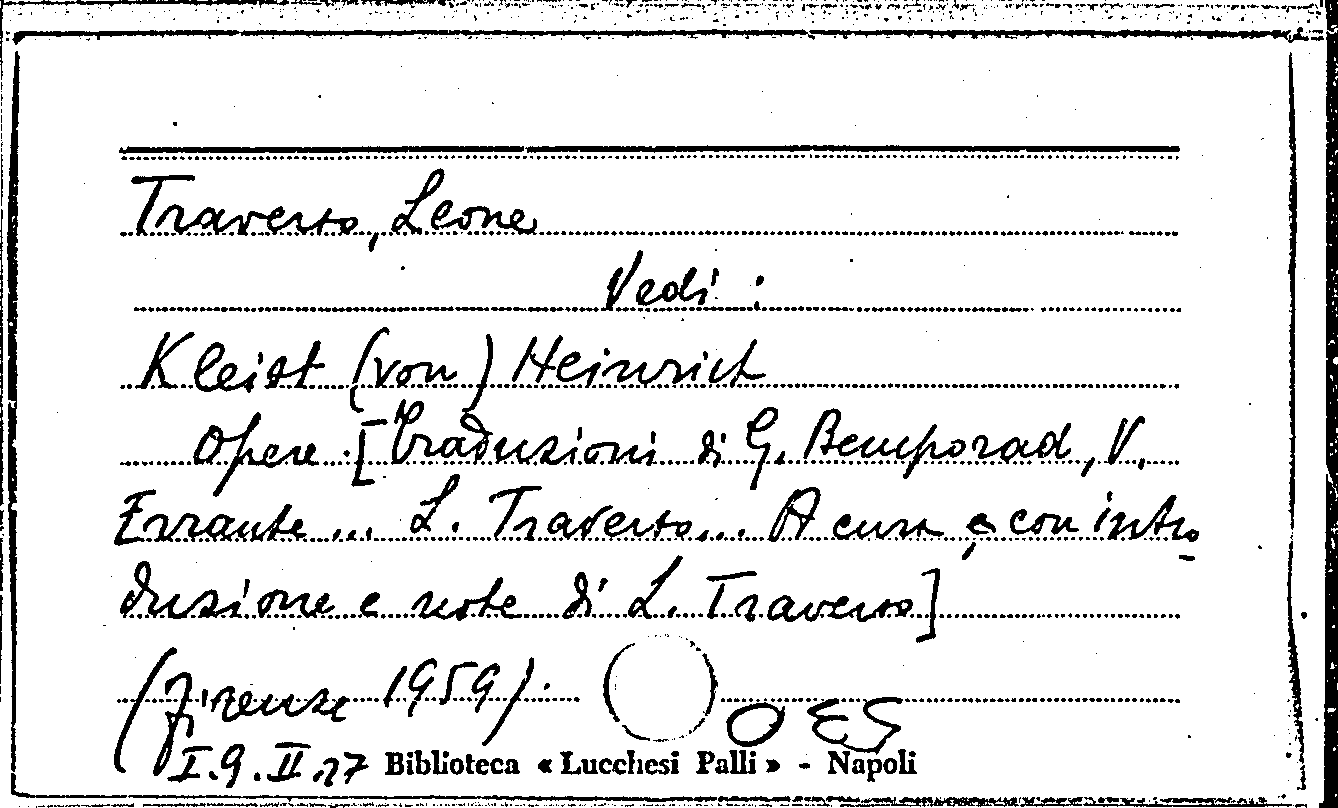 Traverso, Leone
Vedi :
Kleist (von) Heinrich
Opere. [Traduzioni di G. Bemporad, V.
Errante... L. Traverso... A cura e con intro
duzione e note di L. Traverso]
(Firenze 1959).
I.9.II.27 Biblioteca « Lucchesi Palli » - Napoli